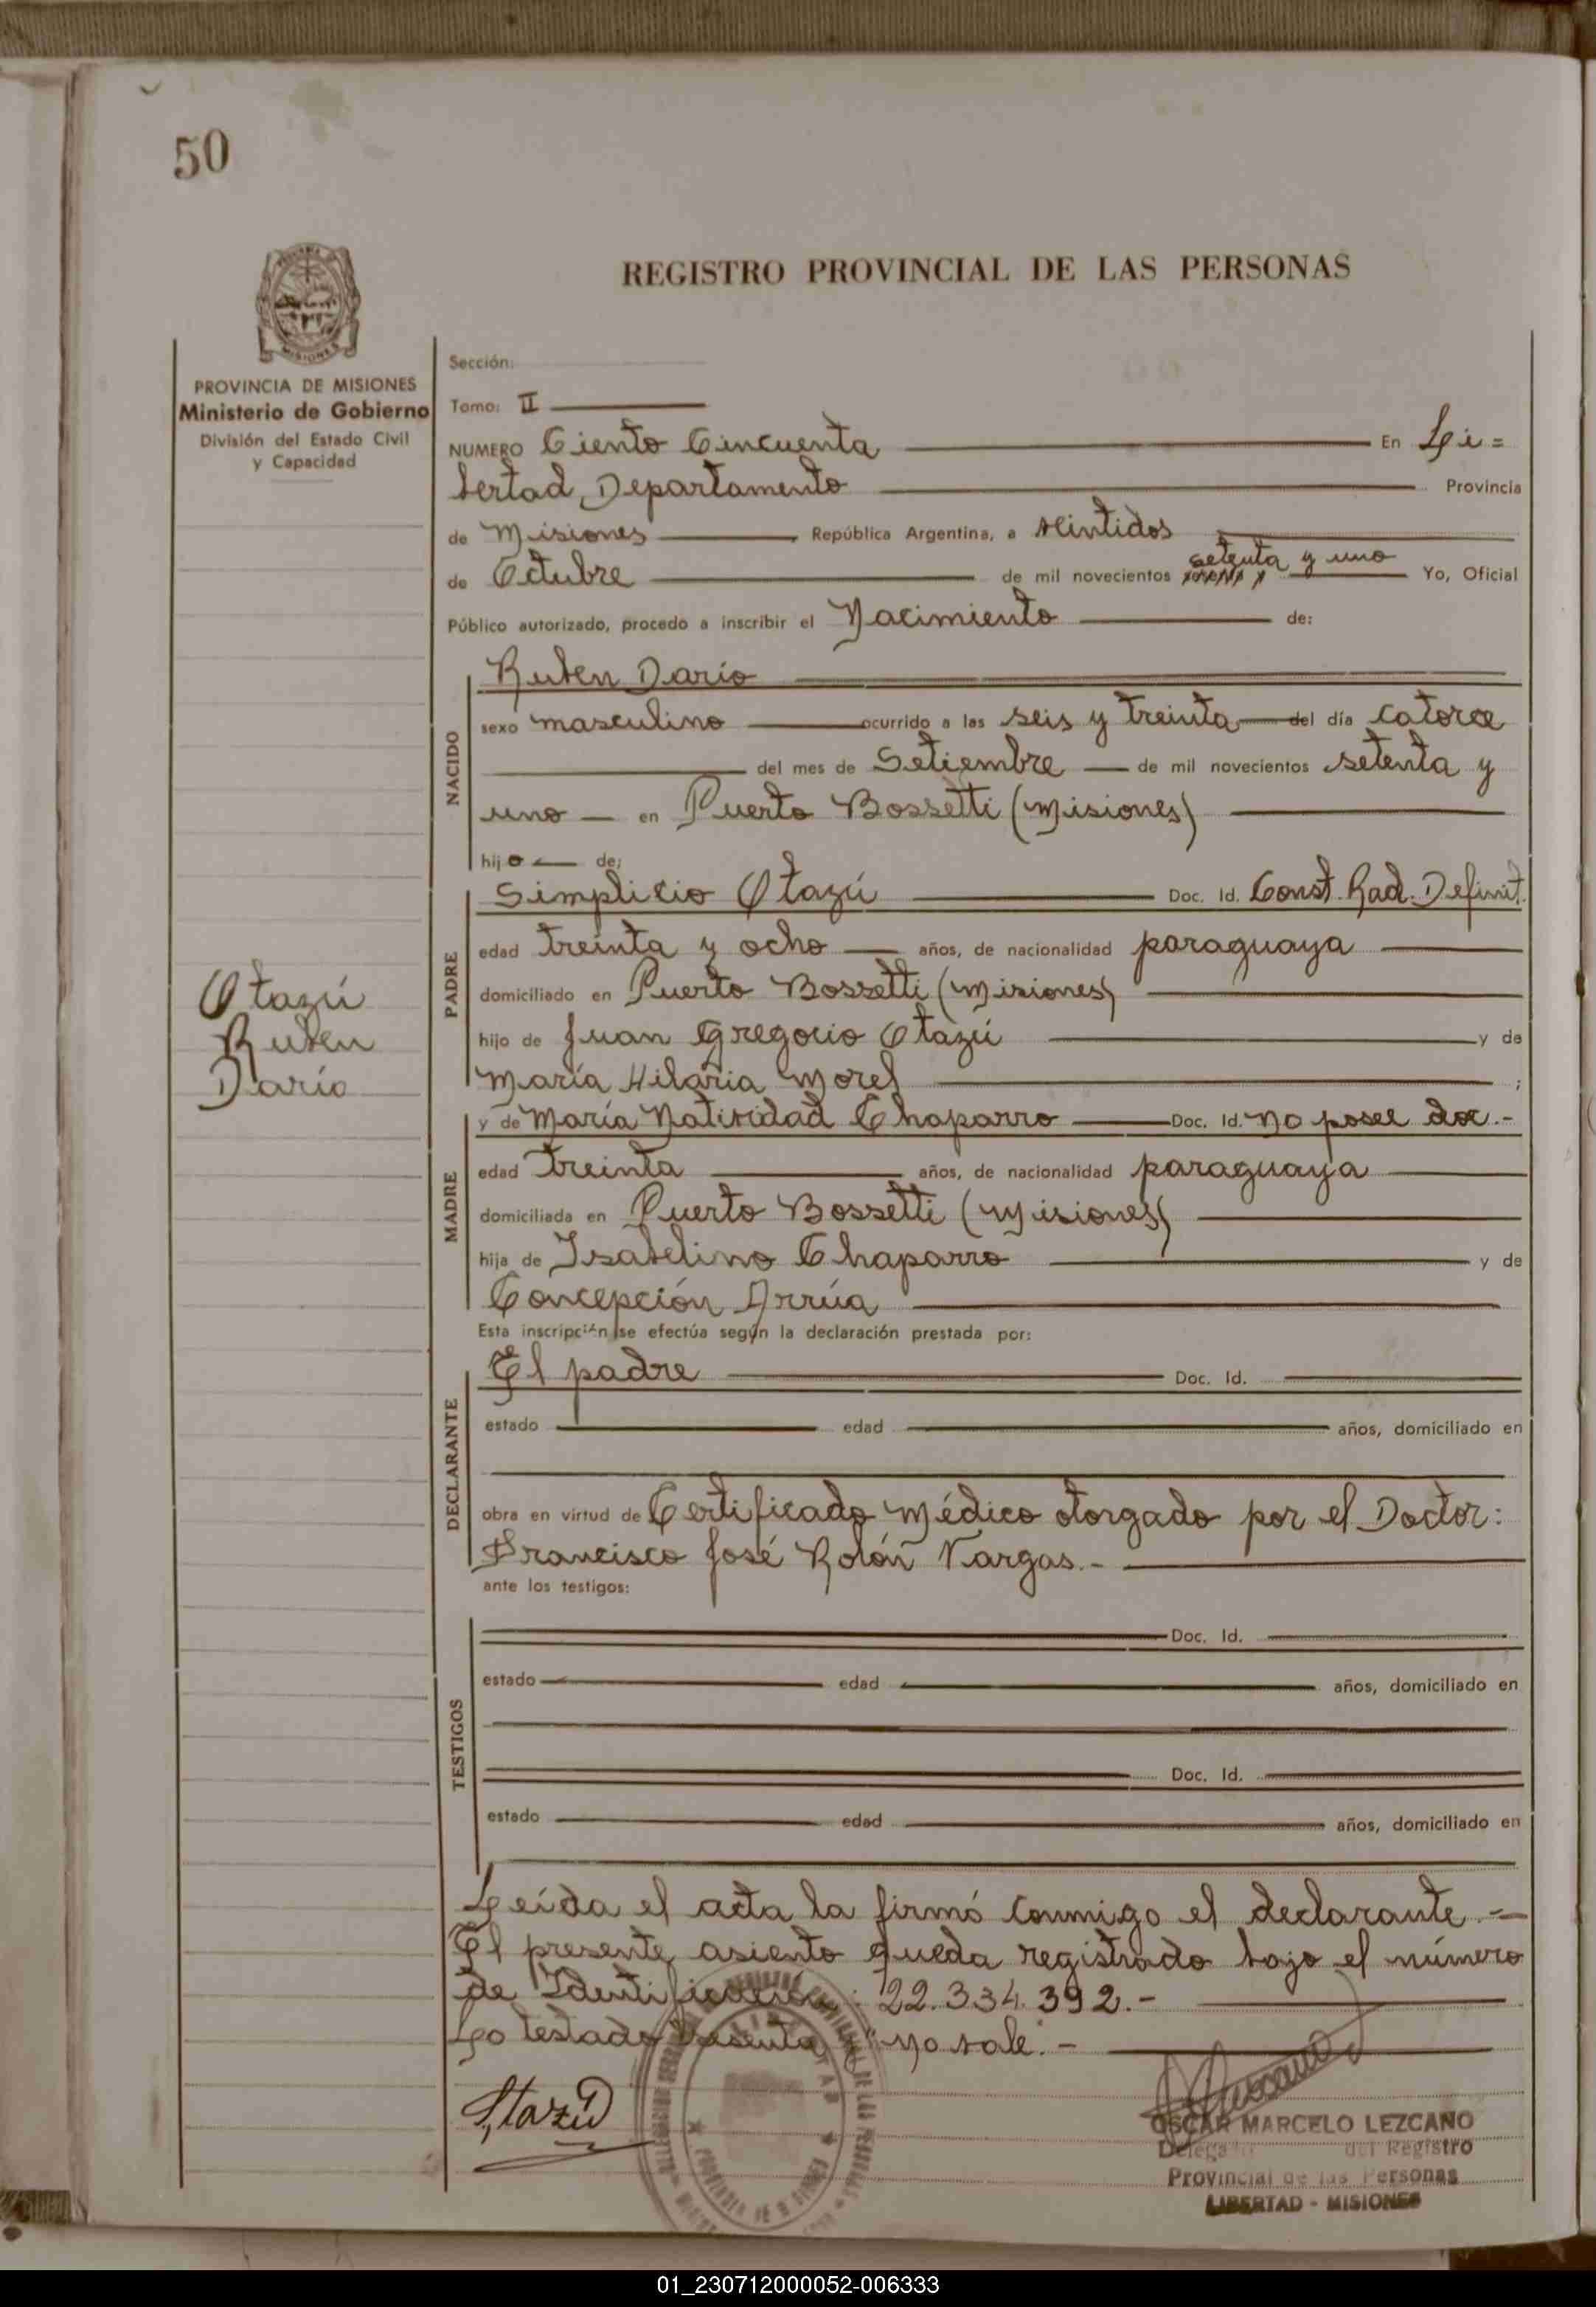 50
REGISTRO PROVINCIAL DE LAS PERSONAS
MISIONES
PROVINCIA DE MISIONES
Ministerio de Gobierno
División del Estado Civil
y Capacidad
Sección:
Tomo: II
NUMERO Ciento Cincuenta En Li=
bertad, Departamento Provincia
de Misiones, República Argentina, a vintidos
setenta y uno
de Octubre de mil novecientos Yo, Oficial
Público autorizado, procedo a inscribir el Nacimiento de:
NACIDO
Ruben Darío
sexo masculino ocurrido a las seis y treinta del día catorce
del mes de Setiembre de mil novecientos setenta y
uno en Puerto Bossetti (Misiones)
hijo de:
PADRE
Simplicio Otazú Doc. Id. Const. Rad. Definit.
edad treinta y ocho años, de nacionalidad paraguaya
domiciliado en Puerto Bossetti (Misiones)
hijo de Juan Gregorio Otazú y de
María Hilaria Morel ;
Otazú
Ruben
Darío
MADRE
y de María Natividad Chaparro Doc. Id. No posee doc.-
edad treinta años, de nacionalidad paraguaya
domiciliada en Puerto Bossetti (Misiones)
hija de Isabelino Chaparro y de
Concepción Arrúa
Esta inscripción se efectúa según la declaración prestada por:
DECLARANTE
El padre Doc. Id.
estado edad años, domiciliado en
obra en virtud de Certificado Médico otorgado por el Doctor:
Francisco José Rolón Vargas.-
ante los testigos:
TESTIGOS
Doc. Id.
estado edad años, domiciliado en
Doc. Id.
estado edad años, domiciliado en
Leída el acta la firmó conmigo el declarante.-
El presente asiento queda registrado bajo el número
de Identificación: 22.334.392.-
Lo testado "sesenta y" no vale.-
Otazú
OSCAR MARCELO LEZCANO
del Registro
Provincial de las Personas
LIBERTAD - MISIONES
01_230712000052-006333